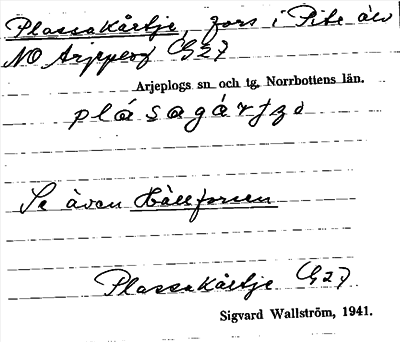 Plassakårtje, fors i Pite älv
NO Arjeplog G27
Arjeplogs sn och tg, Norrbottens län.
Se även Hällforsen
Plassakårtje G27
Sigvard Wallström, 1941.